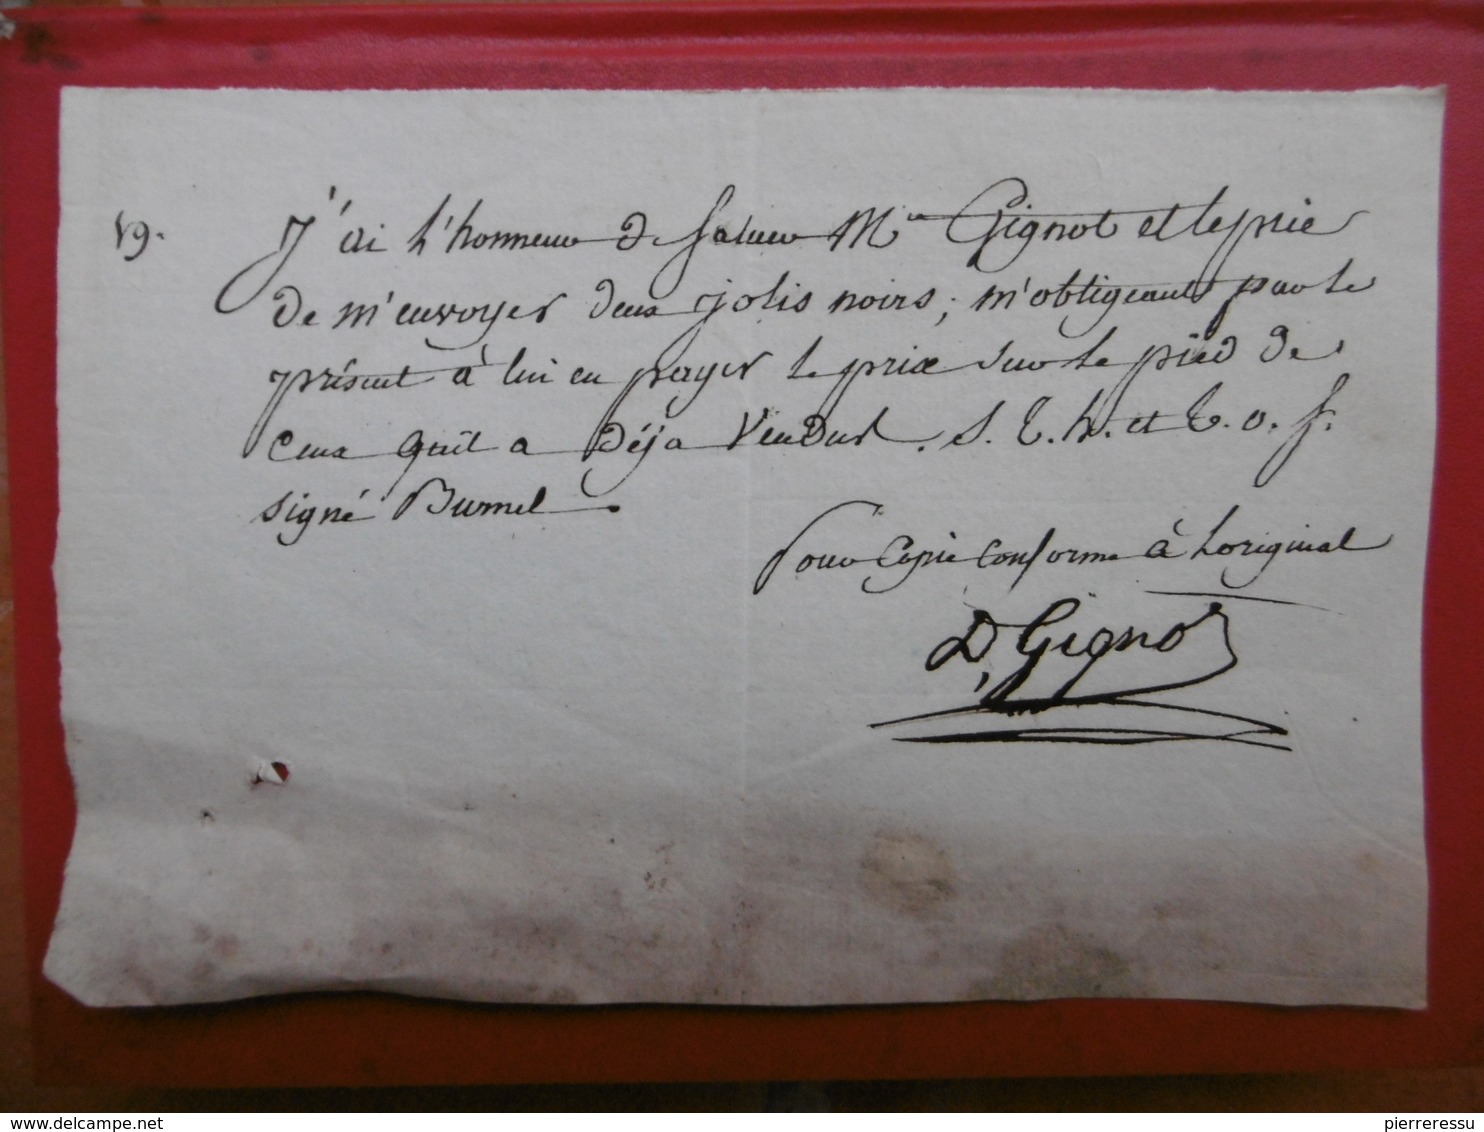 19.
J'ai l'honneur de saluer Mr Gignot et le prie
de m'envoyer deux jolis noirs; m'obligeant par le
présent à lui en payer le prix sur le pied de
ceux qu'il a déja vendus. S. T. h. et T. o. S.
signé Burnel.
Pour Copie Conforme à Loriginal
D. Gignot
www.delcampe.net
pierreressu